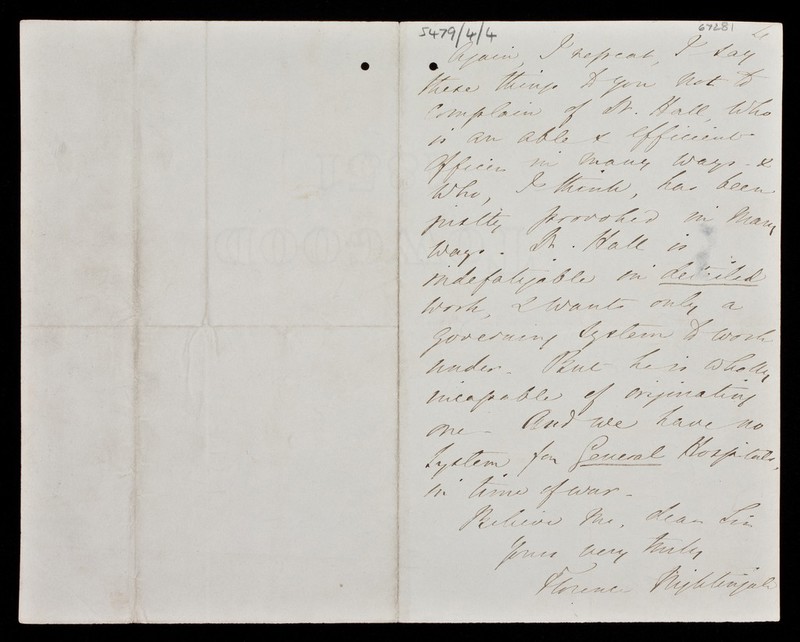 5479/4/4
67281
4
Again, I repeat, I say
these things to you not to
complain of Dr. Hall, who
is an able & efficient
Officer in many ways - &
who, I think, has been
justly provoked in many
ways - Dr. Hall is
indefatigable in detailed
work, & wants only a
governing system to work
under. But he is wholly
incapable of originating
one - And we have no
system for General Hospitals,
in time of war -
Believe me, dear Sir
Yours very truly
Florence Nightingale